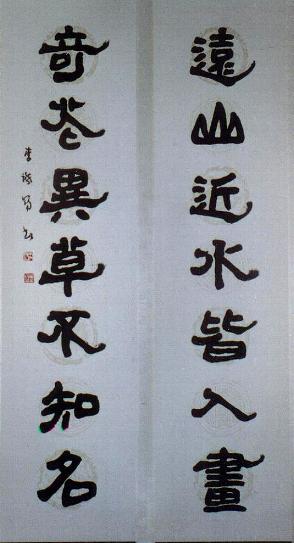 遠山近水皆入畫
奇花異草不知名